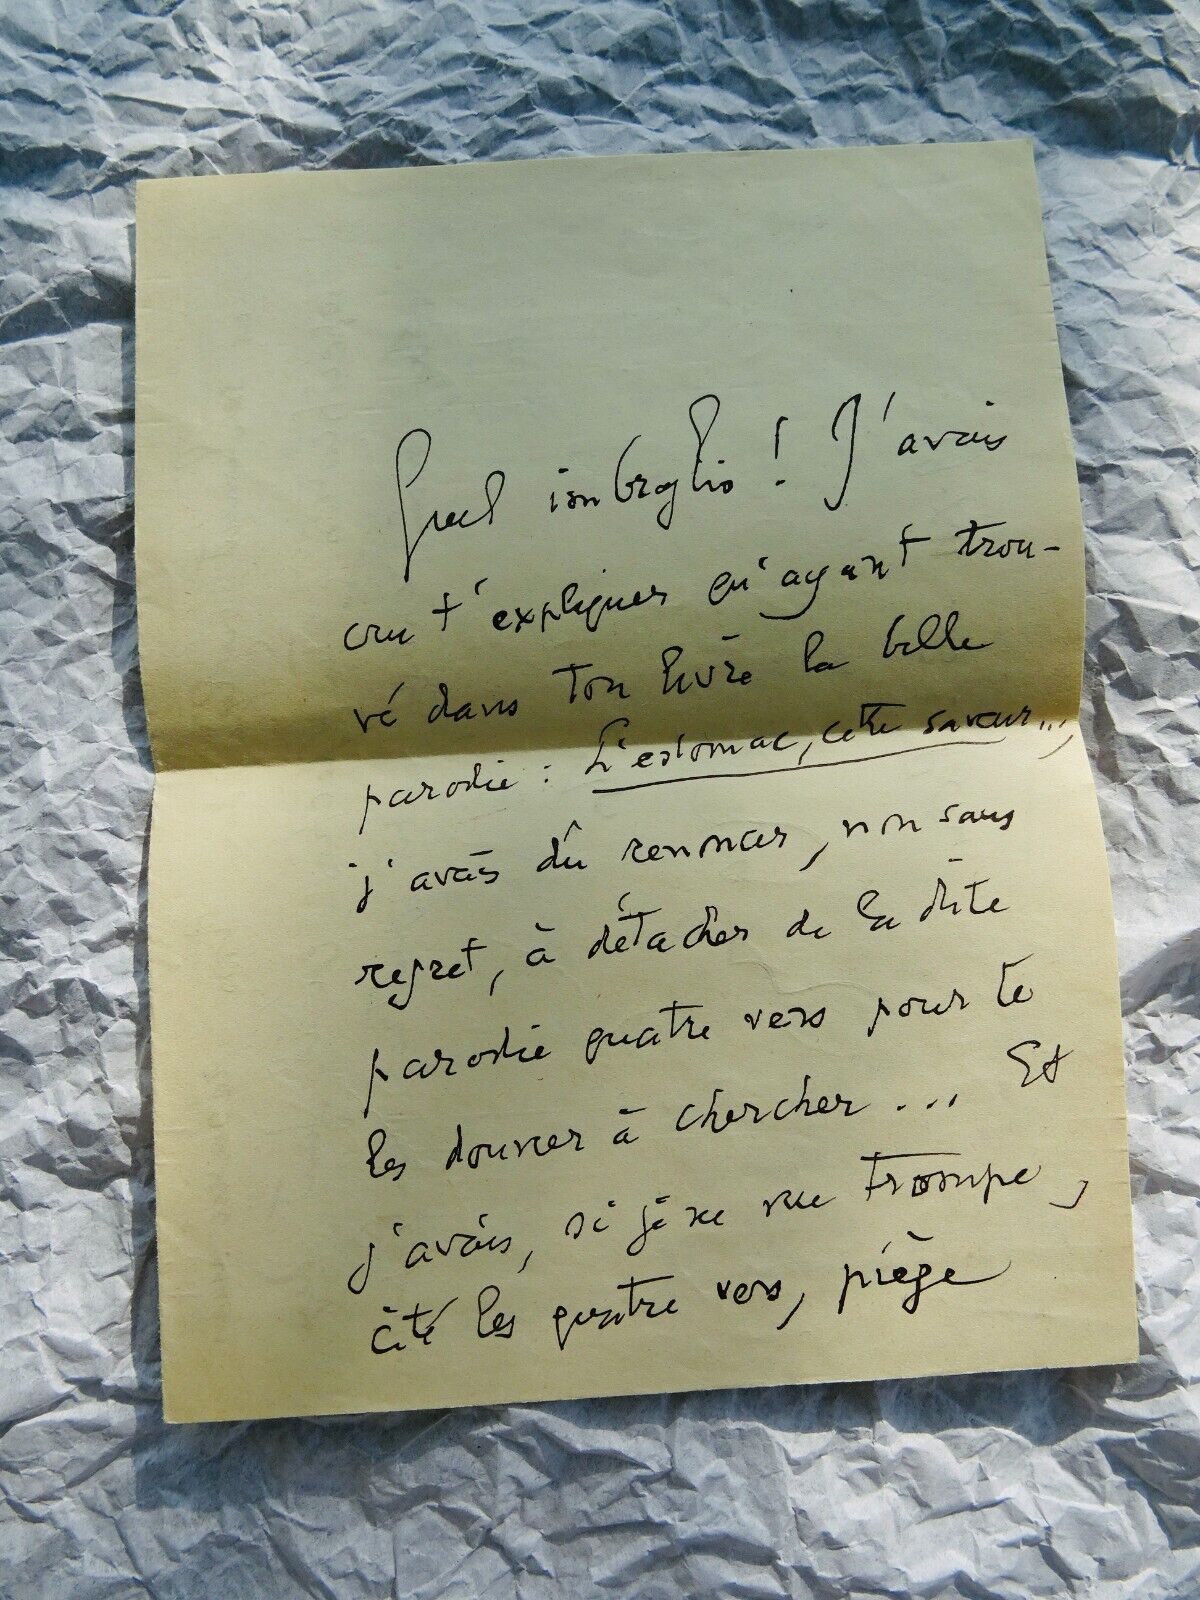 Quel imbroglio ! J'avais
cru t'expliquer qu'ayant trou-
vé dans ton livre la belle
parodie : L'estomac, cette saveur...,
j'avais dû renoncer, non sans
regret, à détacher de la dite
parodie quatre vers pour te
les donner à chercher ... Et
j'avais, si je ne me trompe,
cité les quatre vers, piège